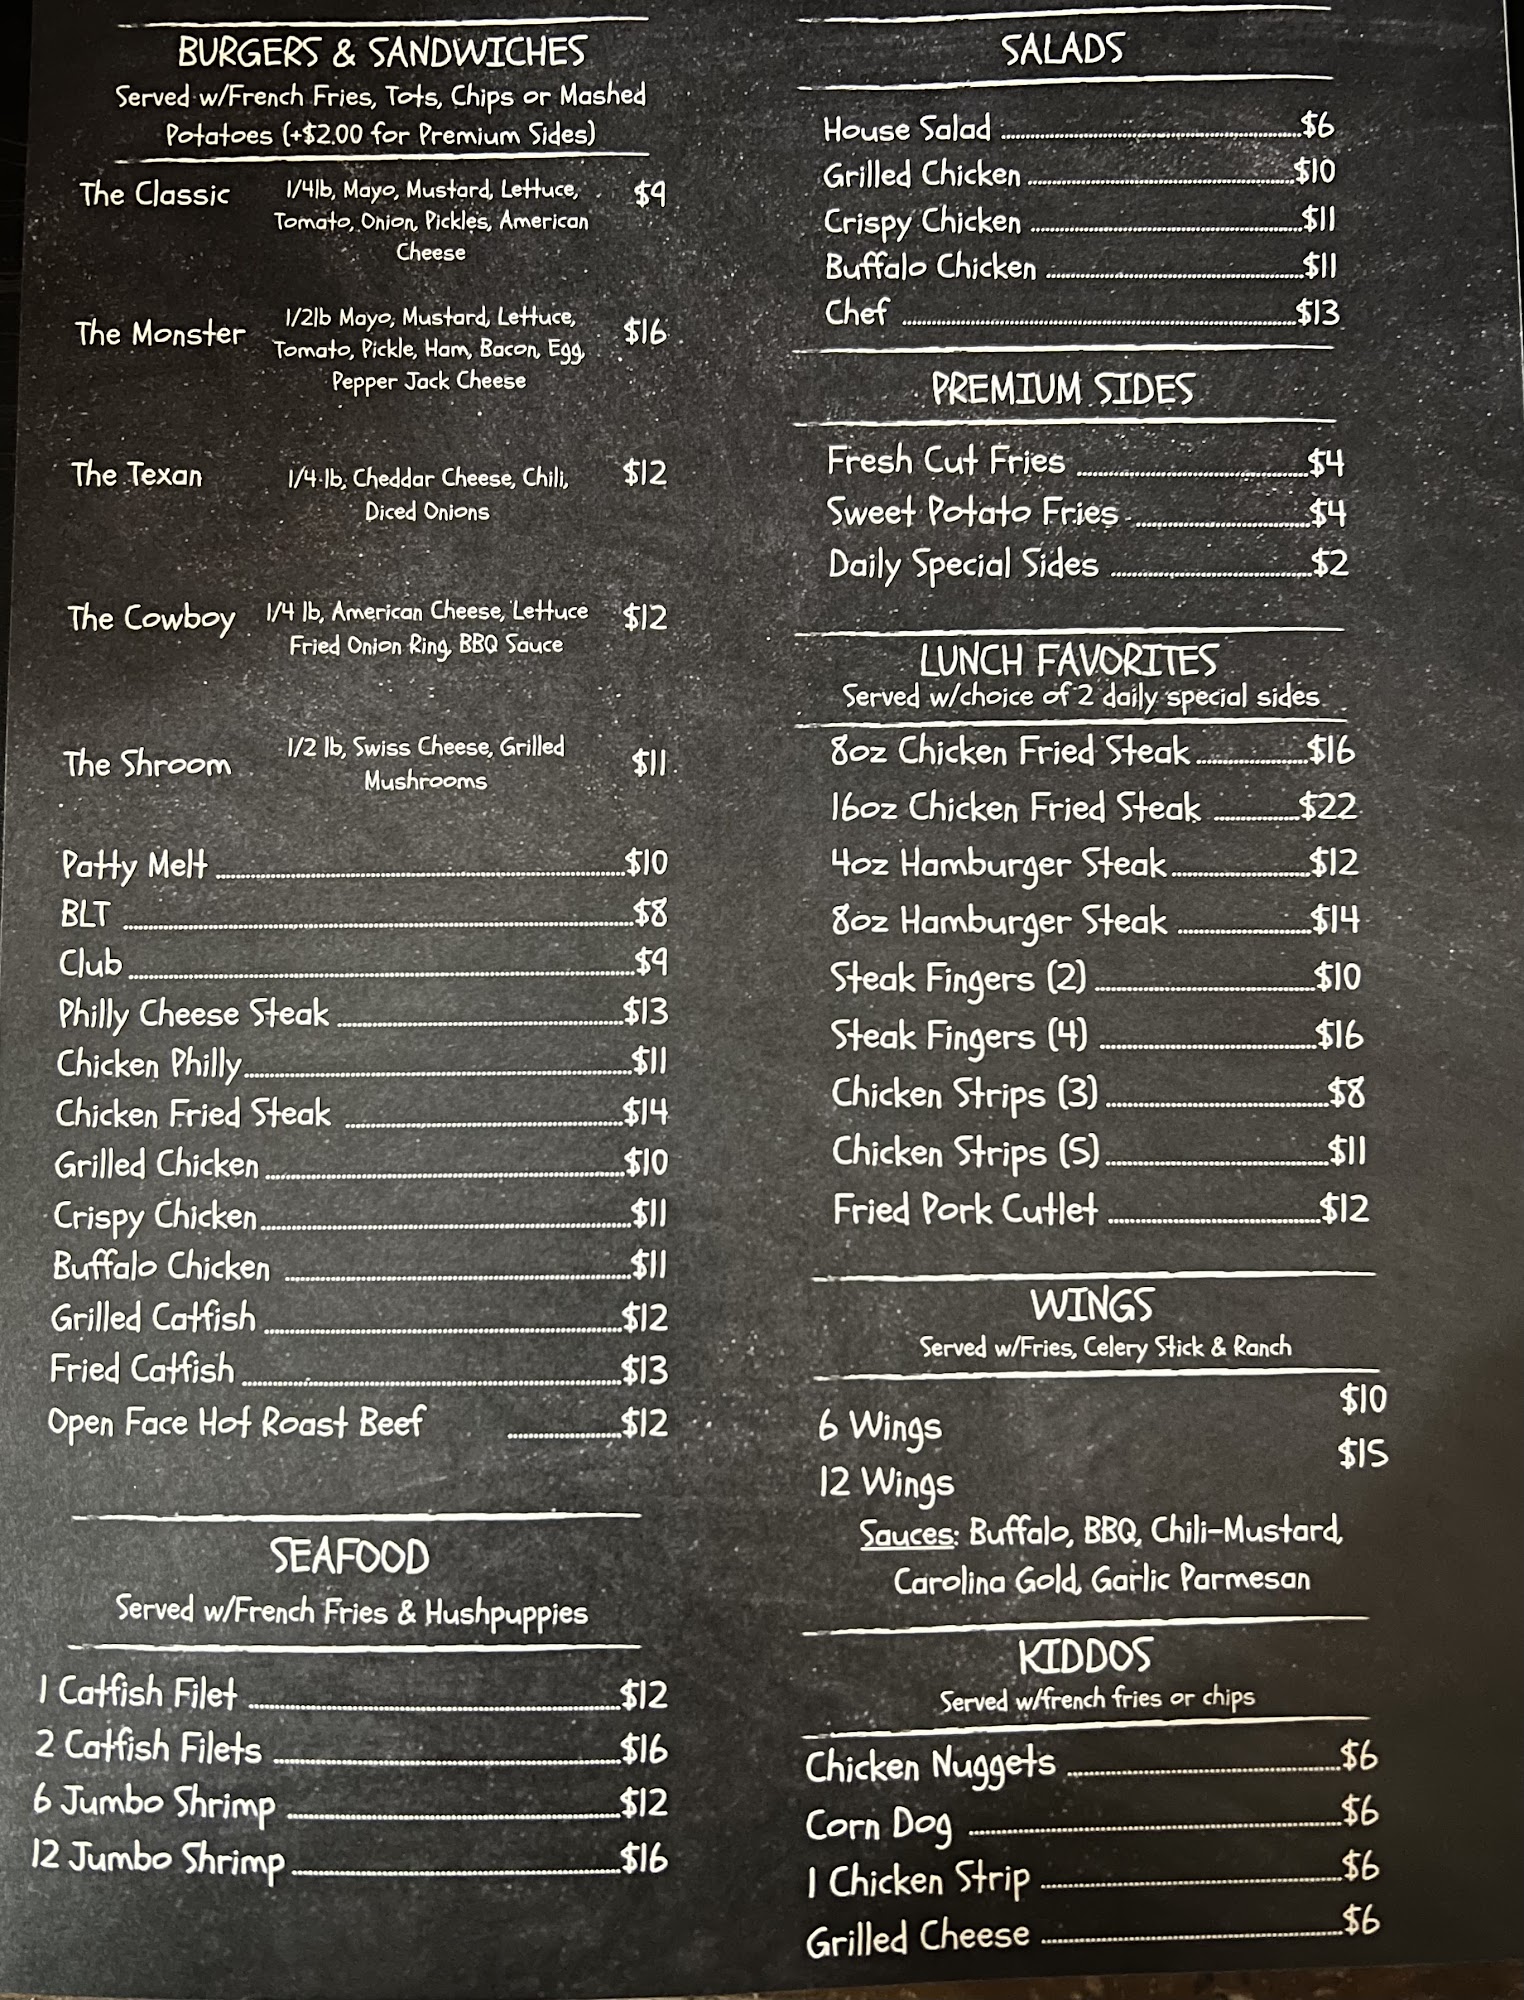 BURGERS & SANDWICHES
Served w/French Fries, Tots, Chips or Mashed
Potatoes (+$2.00 for Premium Sides)
The Classic 1/4lb, Mayo, Mustard, Lettuce, $9
Tomato, Onion, Pickles, American
Cheese
The Monster 1/2lb Mayo, Mustard, Lettuce, $16
Tomato, Pickle, Ham, Bacon, Egg,
Pepper Jack Cheese
The Texan 1/4 lb, Cheddar Cheese, Chili, $12
Diced Onions
The Cowboy 1/4 lb, American Cheese, Lettuce $12
Fried Onion Ring, BBQ Sauce
The Shroom 1/2 lb, Swiss Cheese, Grilled $11
Mushrooms
Patty Melt $10
BLT $8
Club $9
Philly Cheese Steak $13
Chicken Philly $11
Chicken Fried Steak $14
Grilled Chicken $10
Crispy Chicken $11
Buffalo Chicken $11
Grilled Catfish $12
Fried Catfish $13
Open Face Hot Roast Beef $12
SEAFOOD
Served w/French Fries & Hushpuppies
1 Catfish Filet $12
2 Catfish Filets $16
6 Jumbo Shrimp $12
12 Jumbo Shrimp $16
SALADS
House Salad $6
Grilled Chicken $10
Crispy Chicken $11
Buffalo Chicken $11
Chef $13
PREMIUM SIDES
Fresh Cut Fries $4
Sweet Potato Fries $4
Daily Special Sides $2
LUNCH FAVORITES
Served w/choice of 2 daily special sides
8oz Chicken Fried Steak $16
16oz Chicken Fried Steak $22
4oz Hamburger Steak $12
8oz Hamburger Steak $14
Steak Fingers (2) $10
Steak Fingers (4) $16
Chicken Strips (3) $8
Chicken Strips (5) $11
Fried Pork Cutlet $12
WINGS
Served w/Fries, Celery Stick & Ranch
6 Wings $10
12 Wings $15
Sauces: Buffalo, BBQ, Chili-Mustard,
Carolina Gold, Garlic Parmesan
KIDDOS
Served w/french fries or chips
Chicken Nuggets $6
Corn Dog $6
1 Chicken Strip $6
Grilled Cheese $6